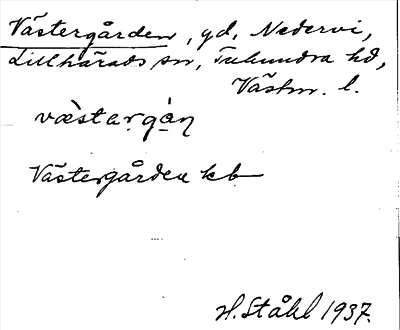 Västergården, gd, Nedervi,
Lillhärads sn, Tuhundra hd,
Västm. l.
væ̀stargàṇ
Västergården kb
H. Ståhl 1937.